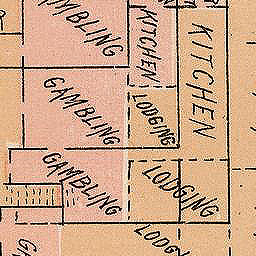 GAMBLING
KITCHEN
KITCHEN
GAMBLING
LODGING
GAMBLING
LODGING